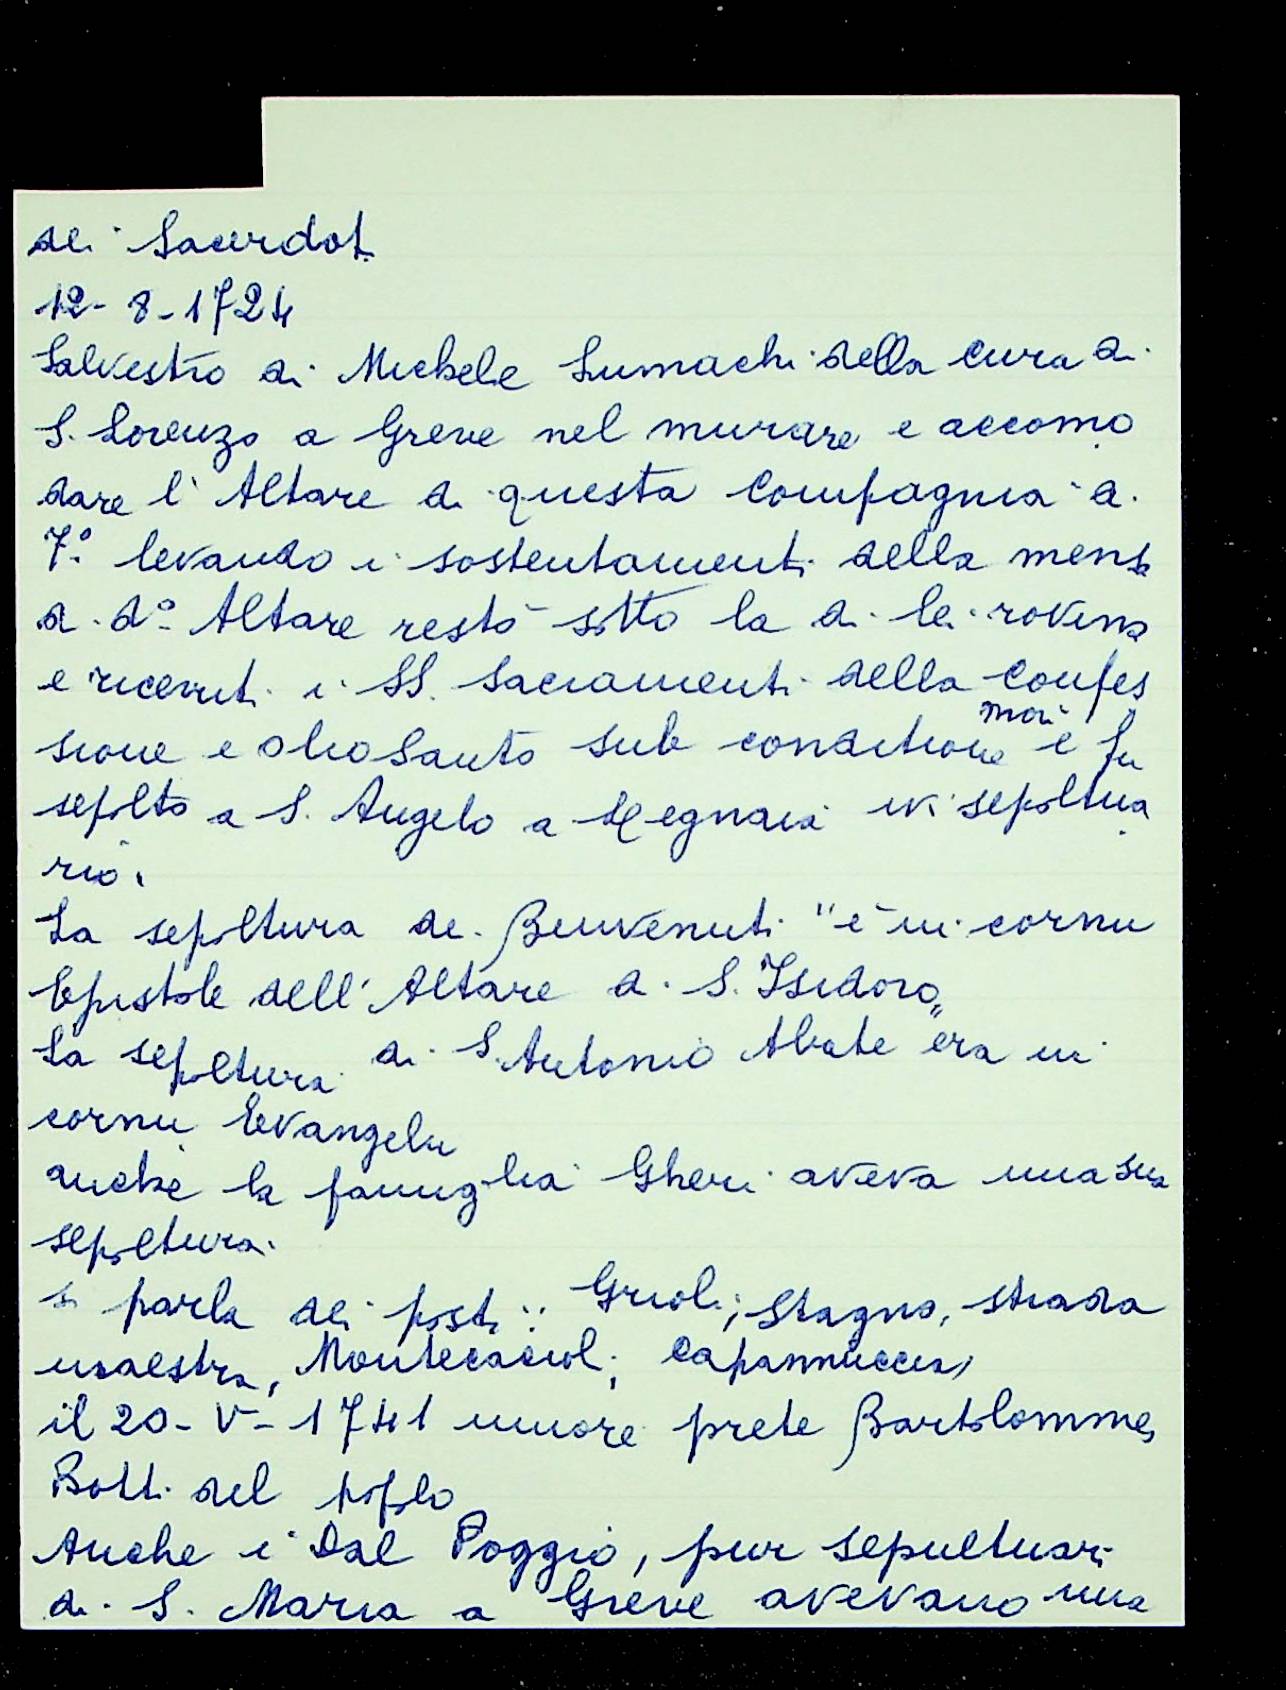 dei Sacerdoti
12-8-1724
Salvestro di Michele Lumachi della cura di
S. Lorenzo a Greve nel murare e accomo
dare l'Altare di questa Compagnia a.
7.º levando i sostentamenti della mensa
di d.º Altare restò sotto la di lei rovina
e ricevuti i SS. Sacramenti della Confes
sione e Olio Santo sub conditione morì e fu
sepolto a S. Angelo a Legnaia ivi sepoltua
rio.
La sepoltura dei Benvenuti "è in cornu
Epistole dell'Altare di S. Isidoro"
La sepoltura di S. Antonio Abate era in
cornu Evangelii
anche la famiglia Gheri aveva una sua
sepoltura.
Si parla dei posti: Grioli; Stagno, strada
maestra, Montecacioli; Capannuccia,
il 20-V-1741 muore prete Bartolommeo
Botti del popolo
Anche i Dal Poggio, pur sepultuari
di S. Maria a Greve avevano una